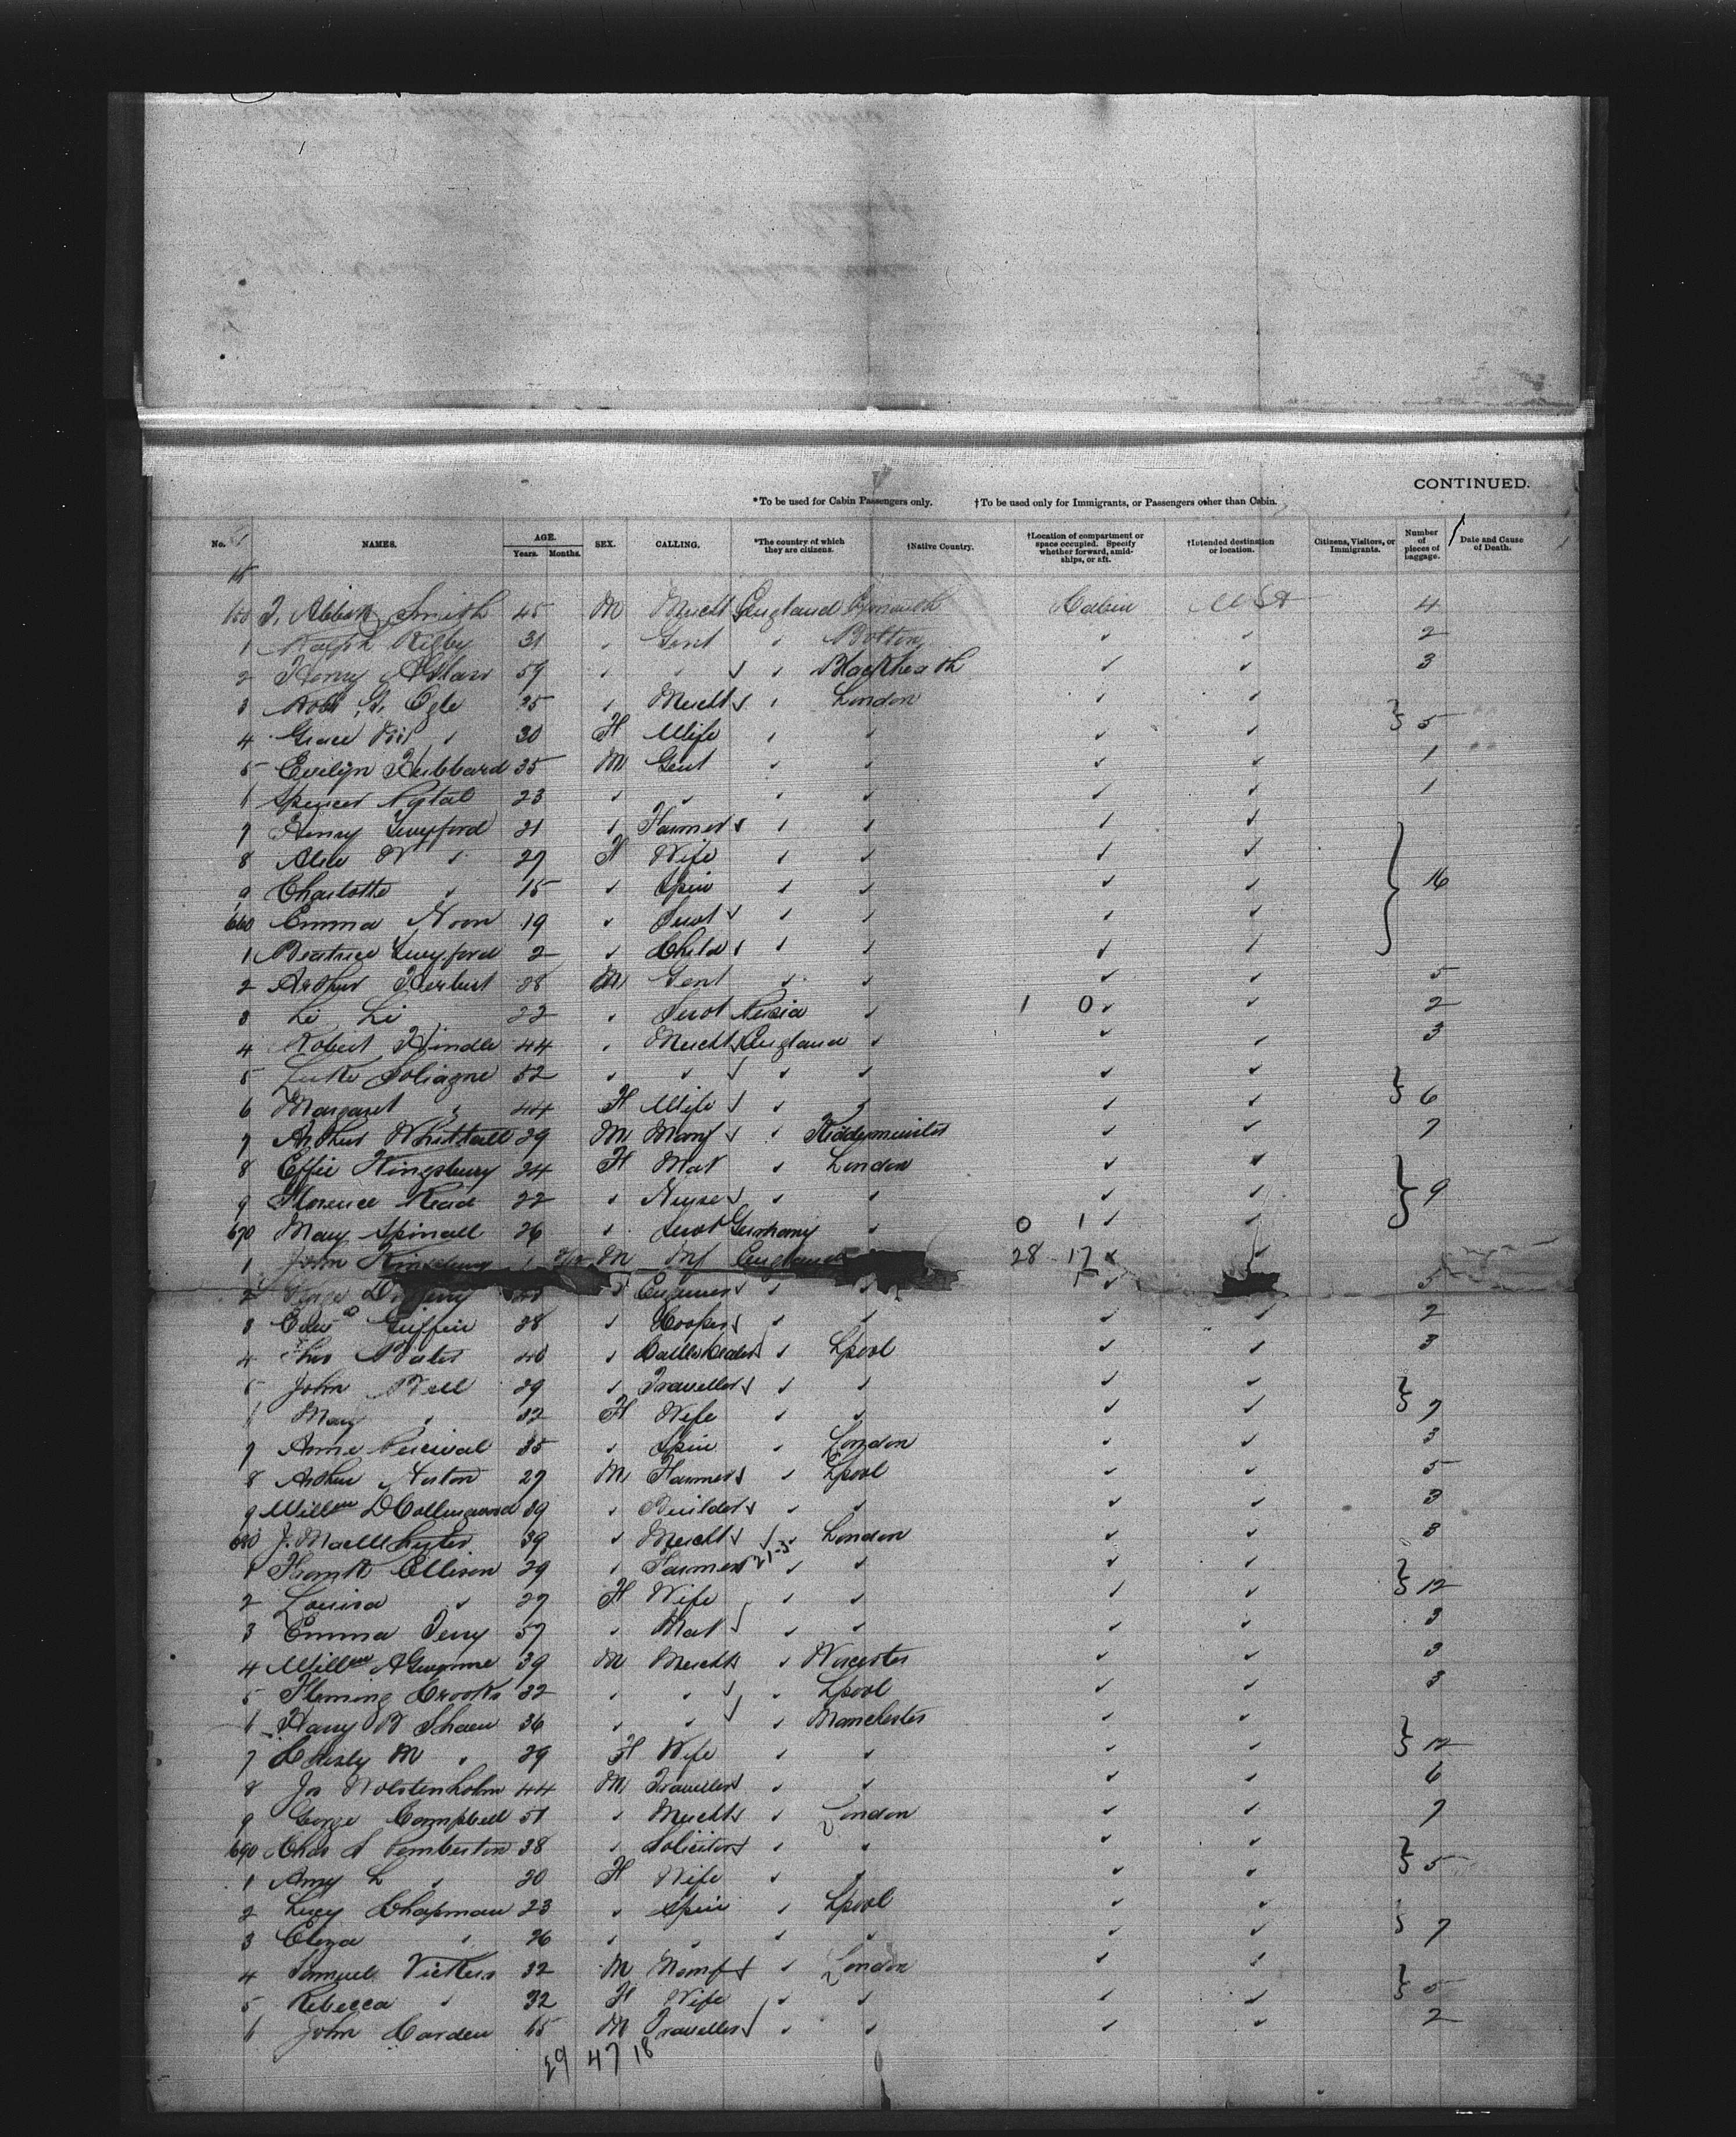 CONTINUED.
*To be used for Cabin Passengers only. †To be used only for Immigrants, or Passengers other than Cabin.
No. NAMES. AGE. Years. Months. SEX. CALLING. *The country of which they are citizens. †Native Country. †Location of compartment or space occupied. Specify whether forward, amidships, or aft. †Intended destination or location. Citizens, Visitors, or Immigrants. Number of pieces of baggage. Date and Cause of Death.
Smith 45 M Mercht England Cabin USA 4
1 Ralph Rigby 31 " Gent " Bolton " " 2
2 Henry 59 " " " Blackheath " " 3
3 Robt G. Ogle 25 " Mercht " London " "
4 Grace " 30 F Wife " " " " } 5
5 Evelyn Hubbard 35 M Gent " " " " 1
6 Spencer 23 " " " " " " 1
7 Henry Twyford 21 " Farmer " " " "
8 Alice " 27 F Wife " " " "
9 Charlotte " 15 " Spin " " " " } 16
660 Emma Moon 19 " Servt " " " "
1 Beatrice Twyford 2 " Child " " " "
2 Arthur Herbert 28 M Gent " " " " 5
3 Li Li 22 " Servt " 1 0 " " 2
4 Robert Hindle 44 " Mercht England " " " 3
5 Luke 52 " " " " " "
6 Margaret " 44 F Wife " " " " } 6
7 Arthur Whittall 29 M Manf " Kidderminster " " 7
8 Effie Kingsbury 24 F Mat " London " "
9 Florence Read 22 " Nurse " " " " } 9
670 Mary Spinall 26 " Servt Germany " 0 1 " "
1 John M Inf England 28 17 " "
2 George " Engineer " " " " 5
3 Edwd Griffin 28 " Cooper " " " " 2
4 Thos 40 " Cattle Dealer " Lpool " " 3
5 John Bell 29 " Traveller " " " "
6 Mary " 32 F Wife " " " " } 7
7 Anne Percival 35 " Spin " London " " 3
8 Arthur Aston 27 M Farmer " Lpool " " 5
9 Willm D Collingwood 39 " Builder " " " " 3
680 J. 39 " Mercht " London " " 3
1 Frank Ellison 29 " Farmer 21-3 " " " "
2 Louisa " 27 F Wife " " " " } 12
3 Emma Terry 57 " Mat " " " " 3
4 Willm A Gwynne 39 M Mercht " Worcester " " 3
5 Fleming Crooks 32 " " " Lpool " " 3
6 Harry B Shaen 36 " " " Manchester " "
7 M " 29 F Wife " " " " } 12
8 Jos Wolstenholm 44 M Traveller " " " " 6
9 George Campbell 51 " Mercht " London " " 7
690 Chas S Pemberton 38 " Solicitor " " " "
1 Amy L " 30 F Wife " " " " } 5
2 Lucy Chapman 23 " Spin " Lpool " "
3 Eliza " 26 " " " " " " } 7
4 Samuel Vickers 32 M Manf " London " "
5 Rebecca " 32 F Wife " " " " } 5
6 John Carden 65 M Traveller " " " " 2
29 47 18